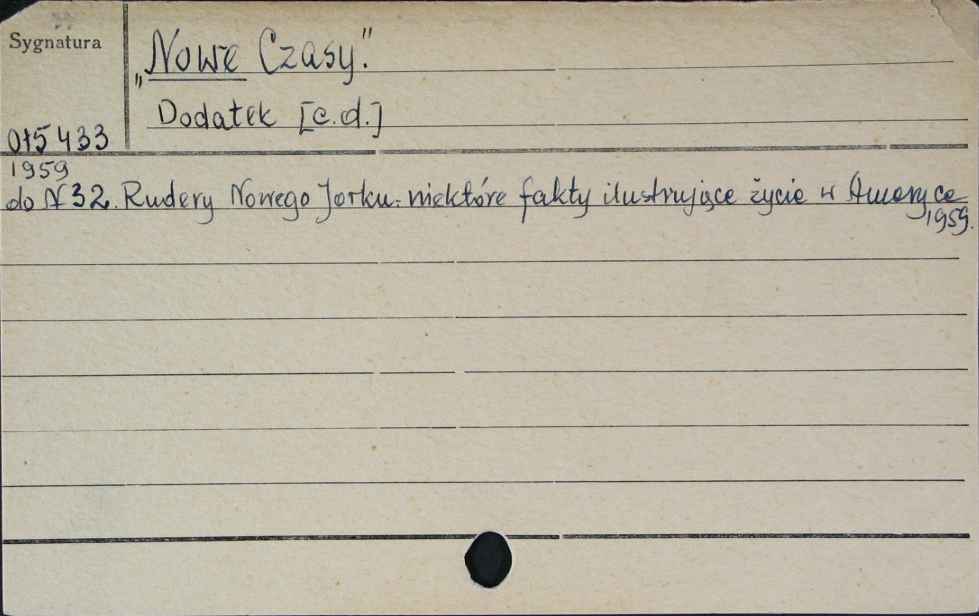 Sygnatura
„Nowe Czasy."
Dodatek [c.d.]
015433
1959
do N 32. Rudery Nowego Jorku. niektóre fakty ilustrujące życie w Ameryce
1959.